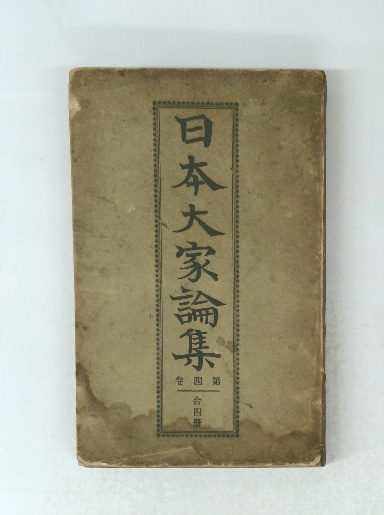 日本大家論集
第四卷
合四冊